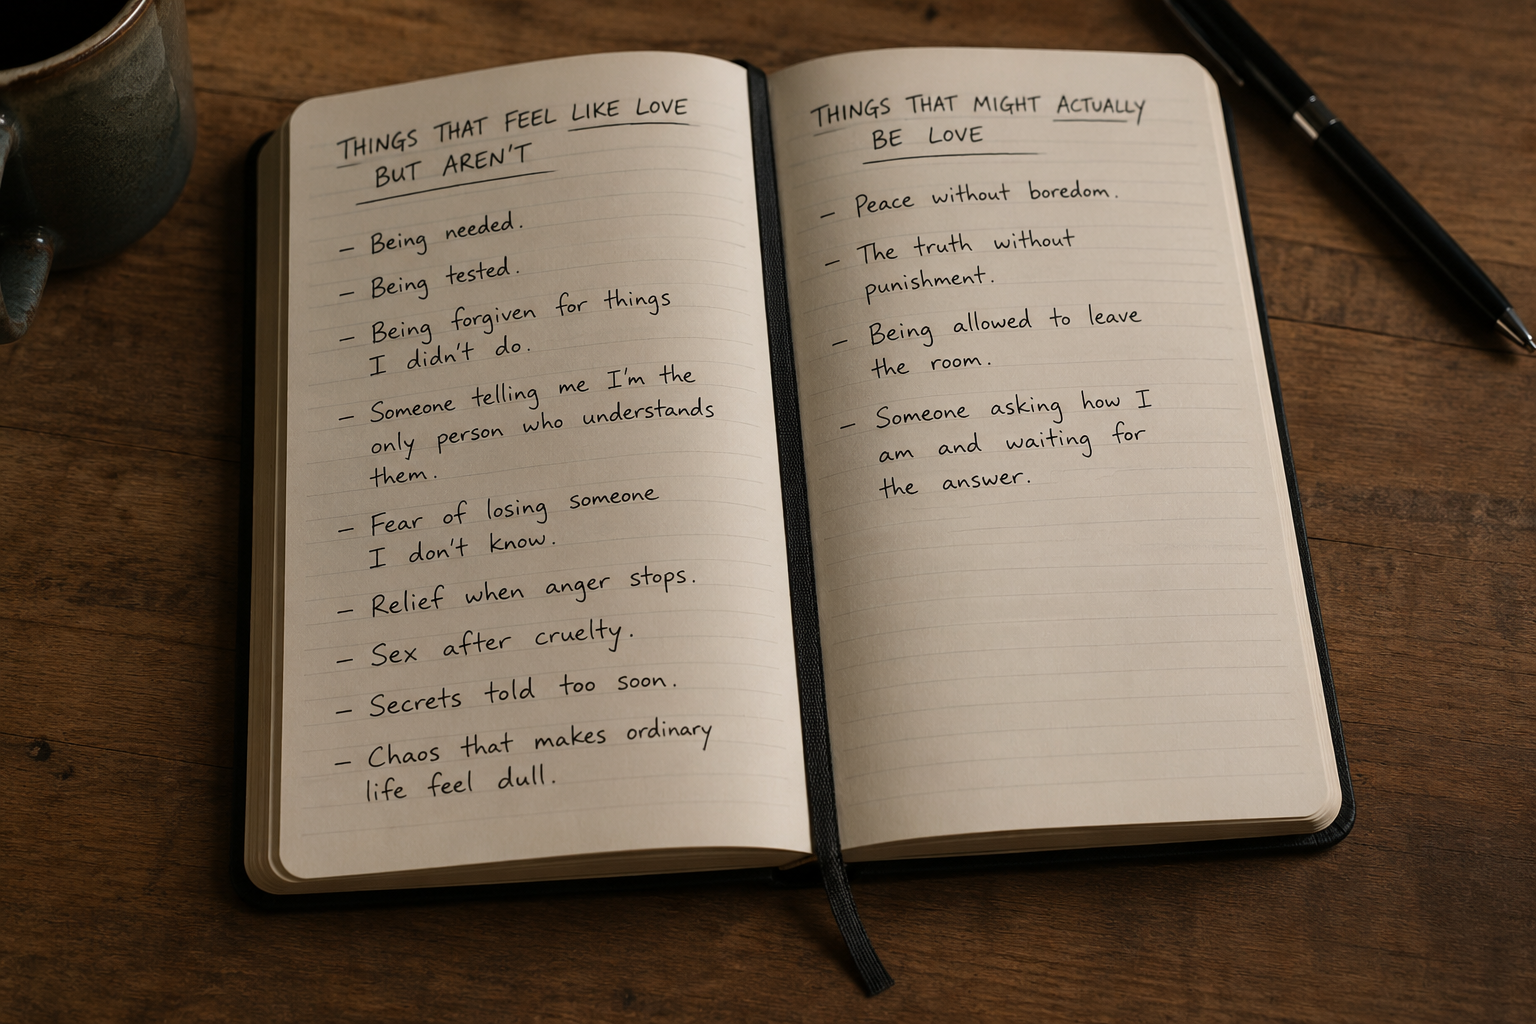 THINGS THAT FEEL LIKE LOVE
BUT AREN'T
– Being needed.
– Being tested.
– Being forgiven for things
I didn't do.
– Someone telling me I'm the
only person who understands
them.
– Fear of losing someone
I don't know.
– Relief when anger stops.
– Sex after cruelty.
– Secrets told too soon.
– Chaos that makes ordinary
life feel dull.
THINGS THAT MIGHT ACTUALLY
BE LOVE
– Peace without boredom.
– The truth without
punishment.
– Being allowed to leave
the room.
– Someone asking how I
am and waiting for
the answer.